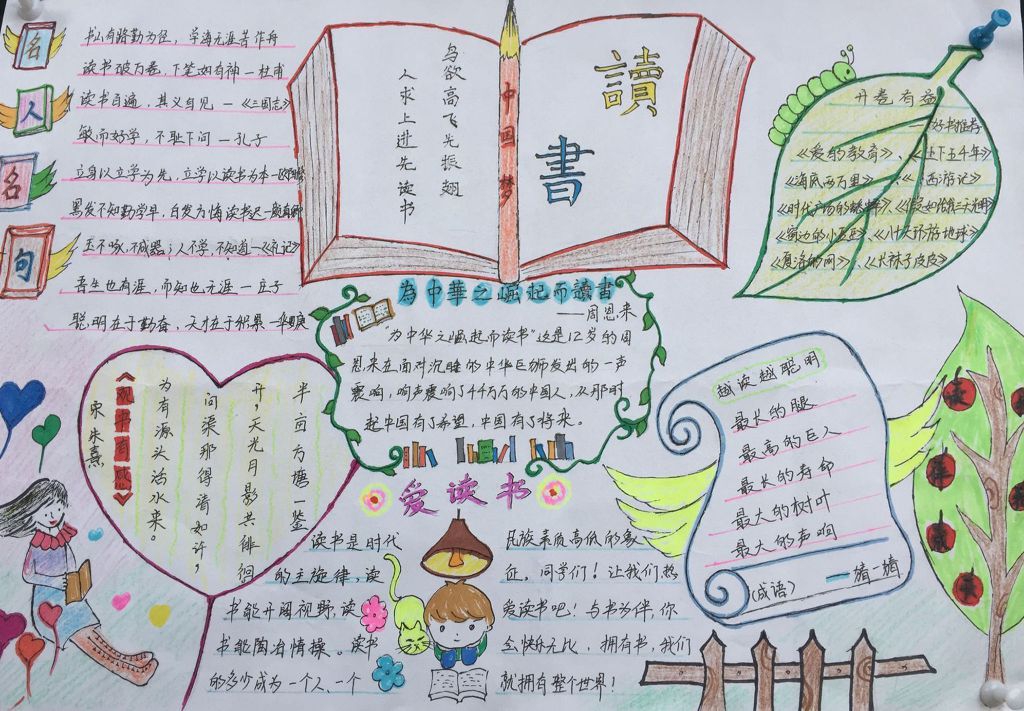 名
人
名
句
书山有路勤为径，学海无涯苦作舟
读书破万卷，下笔如有神—杜甫
读书百遍，其义自见 — 《三国志》
敏而好学，不耻下问 — 孔子
立身以立学为先，立学以读书为本—欧阳修
黑发不知勤学早，白发方悔读书迟—颜真卿
玉不啄，不成器；人不学，不知道—《礼记》
吾生也有涯，而知也无涯 — 庄子
聪明在于勤奋，天才在于积累—华罗庚
讀
書
中国梦
鸟欲高飞先振翅
人求上进先读书
开卷有益
——好书推荐
《爱的教育》、《上下五千年》
《海底两万里》、《西游记》
《时代广场的蟋蟀》、《假如给我三天光明》
《窗边的小豆豆》、《八十天环游地球》
《夏洛的网》、《长袜子皮皮》
為中華之崛起而讀書
——周恩来
“为中华之崛起而读书”这是12岁的周
恩来在面对沉睡的中华巨狮发出的一声
震响，响声震响了4千万的中国人，从那时
起中国有了希望，中国有了将来。
《观书有感》
宋 朱熹
半亩方塘一鉴
开，天光月影共徘徊
问渠那得清如许，
为有源头活水来。
越读越聪明
最长的腿
最高的巨人
最长的寿命
最大的树叶
最大的声响
（成语） ——猜一猜
爱读书
读书是时代
的主旋律，读
书能开阔视野，读
书能陶冶情操。读书
的多少成为一个人、一个
民族素质高低的象
征。同学们！让我们热
爱读书吧！与书为伴，你
会快乐无比，拥有书，我们
就拥有整个世界！